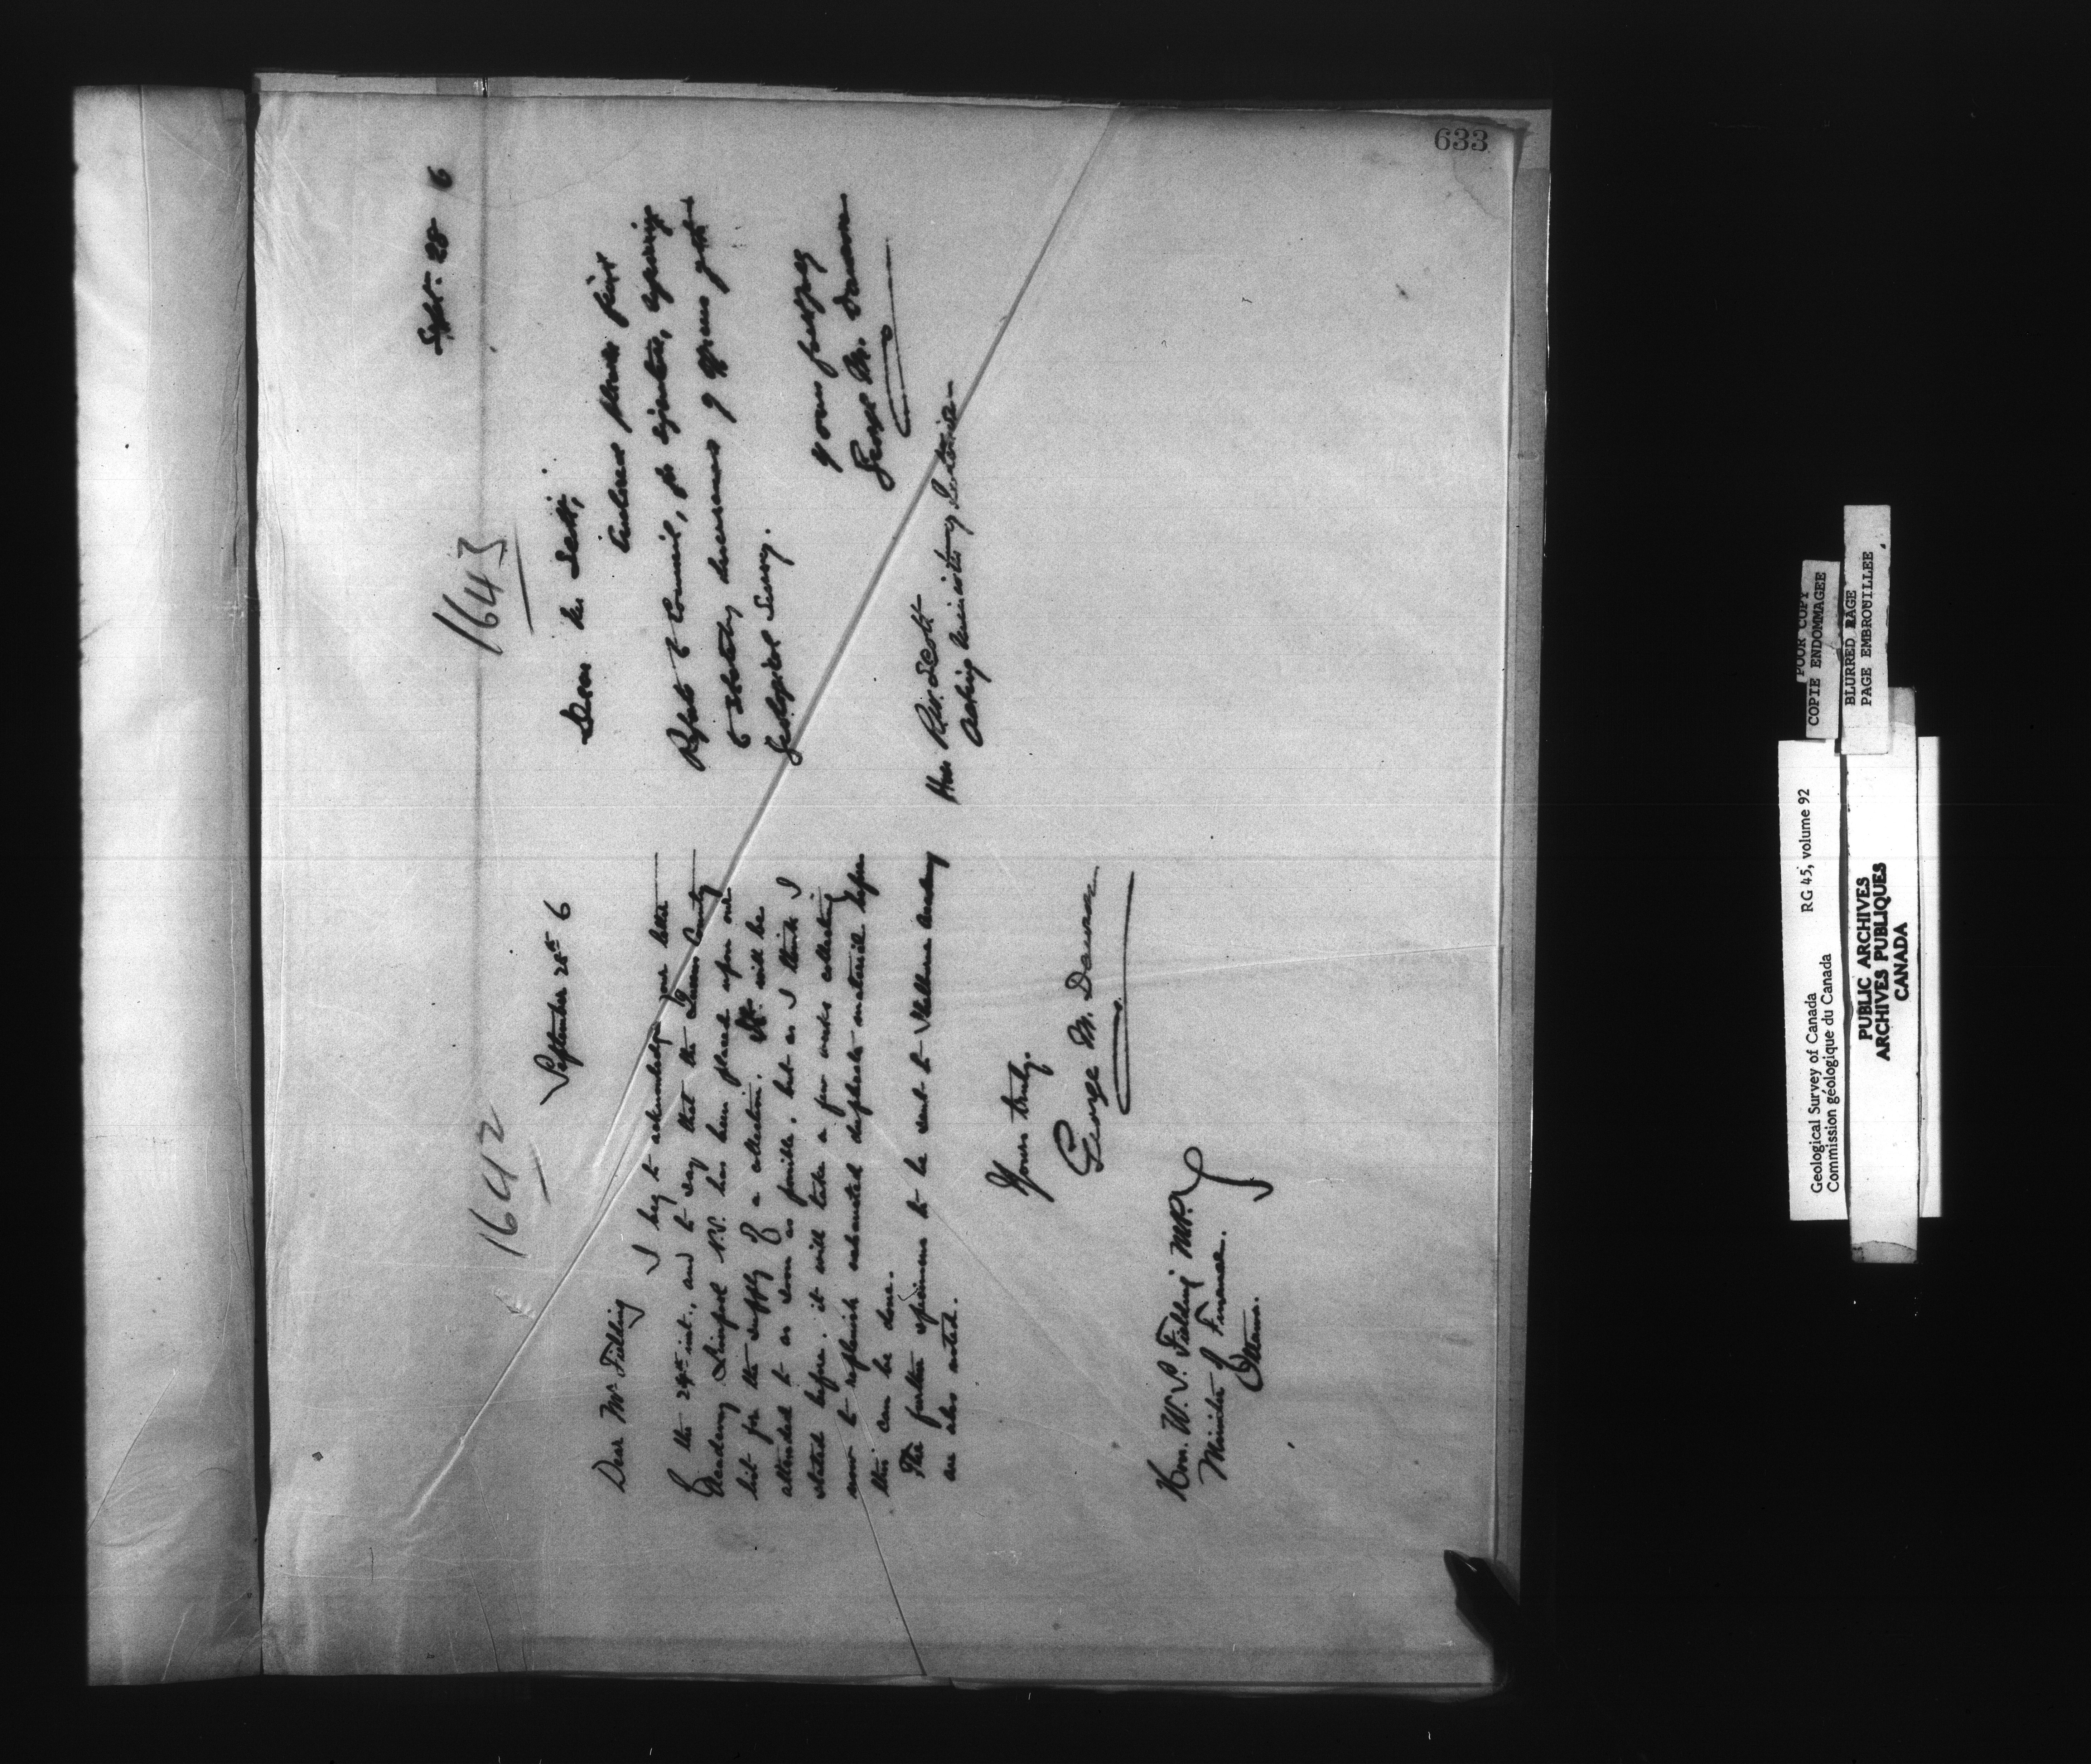 633
1642
September 28th 6
Dear Mr Fielding
I beg to acknowledge your letter
of the 24th inst., and to say that the Queens County
Academy Liverpool N.S. has been placed upon our
list for the supply of a collection. It will be
attended to as soon as possible, but as I think I
stated before, it will take a few weeks collecting
now to replenish exhausted duplicate material before
this can be done.
The further specimens to be sent to Academy
are also noted.
Yours truly.
George M. Dawson
Hon. W. S. Fielding M.P.
Minister of Finance.
Ottawa.
1643
Sept. 28 6
Dear Mr Scott,
Enclosed please find
Report to Council, for signature,
to Statutory increases of officers
Geological Survey.
Yours
George M. Dawson
Hon R.W. Scott
Acting Minister of Interior
POOR COPY
COPIE ENDOMMAGEE
BLURRED PAGE
PAGE EMBROUILLEE
Geological Survey of Canada RG 45, volume 92
Commission géologique du Canada
PUBLIC ARCHIVES
ARCHIVES PUBLIQUES
CANADA